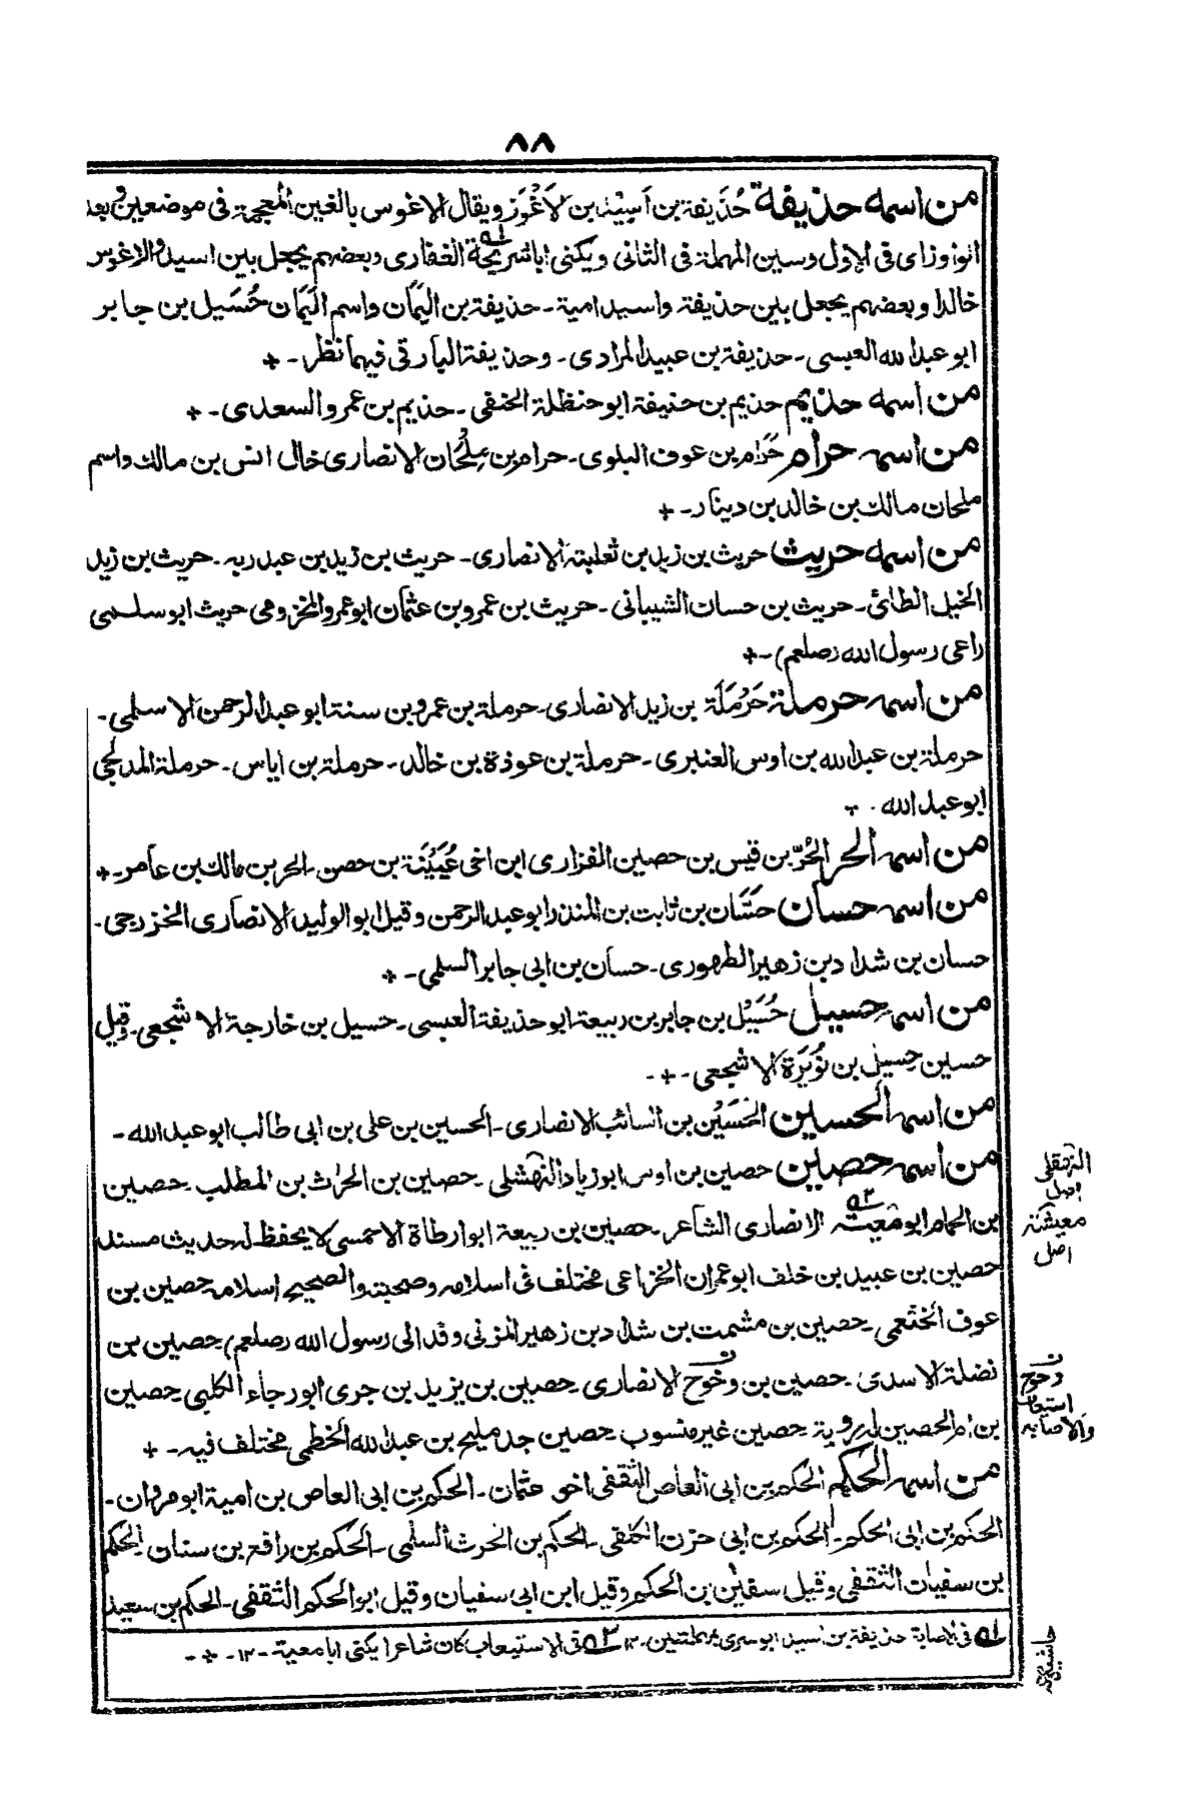 ٨٨
من اسمه حذيفة حُذَيفة بن اَسِيْد بن لاَغْوَز ويقال الاغوس بالغين المعجمة فى موضعين وبعد
الواو زاى فى الاول وسين المهملة فى الثانى ويكنى اباشريحة الغفارى وبعضهم يجعل بين اسيد والاغوس
خالدا وبعضهم يجعل بين حذيفة واسيد امية ـ حذيفة بن اليَمان واسم اليَمَان حُسَيل بن جابر
ابو عبد الله العبسى ـ حذيفة بن عبيد المرادى ـ وحذيفة البارقى فيهما نظر ـ +
من اسمه حذيم حذيم بن حنيفة ابوحنظلة الحنفى ـ حذيم بن عمرو السعدى ـ +
من اسمه حرام حَرَام بن عوف البلوى ـ حرام بن مِلْحَان الانصارى خال انس بن مالك واسم
ملحان مالك بن خالد بن دينار ـ +
من اسمه حريث حريث بن زيد بن ثعلبة الانصارى ـ حريث بن زيد بن عبد ربه ـ حريث بن زيد
الخيل الطائ ـ حريث بن حسان الشيبانى ـ حريث بن عمرو بن عثمان ابو عمرو المخزومى حريث ابو سلمى
راعى رسول الله (صلعم) ـ +
من اسمه حرملة حَرْمَلَة بن زيد الانصارى ـ حرملة بن عمرو بن سنة ابو عبد الرحمن الاسلمى ـ
حرملة بن عبد الله بن اوس العنبرى ـ حرملة بن عوذة بن خالد ـ حرملة بن اياس ـ حرملة المدلجى
ابو عبد الله ـ +
من اسمه الحر الحُرّ بن قيس بن حصين الفزارى ابن اخى عُيَيْنَة بن حصن ـ الحر بن مالك بن عامر ـ +
من اسمه حسان حَسَّان بن ثابت بن المنذر ابو عبد الرحمن وقيل ابو الوليد الانصارى الخزرجى ـ
حسان بن شداد بن زهير الطهورى ـ حسان بن ابى جابر السلمى ـ +
من اسمه حسيل حُسَيْل بن جابر بن ربيعة ابو حذيفة العبسى ـ حسيل بن خارجة الاشجعى ـ وقيل
حسين حسيل بن نُوَيرَة الاشجعى ـ + ـ
من اسمه الحسين الحُسَيْن بن السائب الانصارى ـ الحسين بن على بن ابى طالب ابو عبد الله ـ
من اسمه حصين حصين بن اوس ابو زياد النهشلى ـ حصين بن الحراث بن المطلب ـ حصين
بن الحمام ابو معيتة الانصارى الشاعر ـ حصين بن ربيعة ابو ارطاة الاحمسى لا يحفظ له حديث مسند
حصين بن عبيد بن خلف ابو عمران الخزاعى مختلف فى اسلامه وصحبته والصحيح اسلامه حصين بن
عوف الخثعمى ـ حصين بن مشمت بن شداد بن زهير المزنى وفد الى رسول الله (صلعم) حصين بن
نضلة الاسدى ـ حصين بن وَحْوَح الانصارى حصين بن يزيد بن جرى ابو رجاء الكلبى حصين
بن ام الحصين له روية حصين غير منسوب حصين جد مليح بن عبد الله الخطمى مختلف فيه ـ +
من اسمه الحكم الحكم بن ابى العاص الثقفى اخو عثمان ـ الحكم بن ابى العاص بن امية ابو مروان ـ
الحكم بن ابى الحكم ـ الحكم بن ابى حزن الكلفى ـ الحكم بن الحرث السلمى ـ الحكم بن رافع بن سنان الحكم
بن سفيان الثقفى وقيل سفين بن الحكم وقيل ابن ابى سفيان وقيل ابو الحكم الثقفى ـ الحكم بن سعيد
النهقلى
اصل
معيشته
اصل
ن
وحوح
استيعاب
والاصابه
حاشيه
له فى الاصابة حذيفة بن اسيد ابو سرى بمهملتين ـ ١٢ ٢ه فى الاستيعاب كان شاعرا يكنى ابا معية ـ ١٢ ـ + ـ